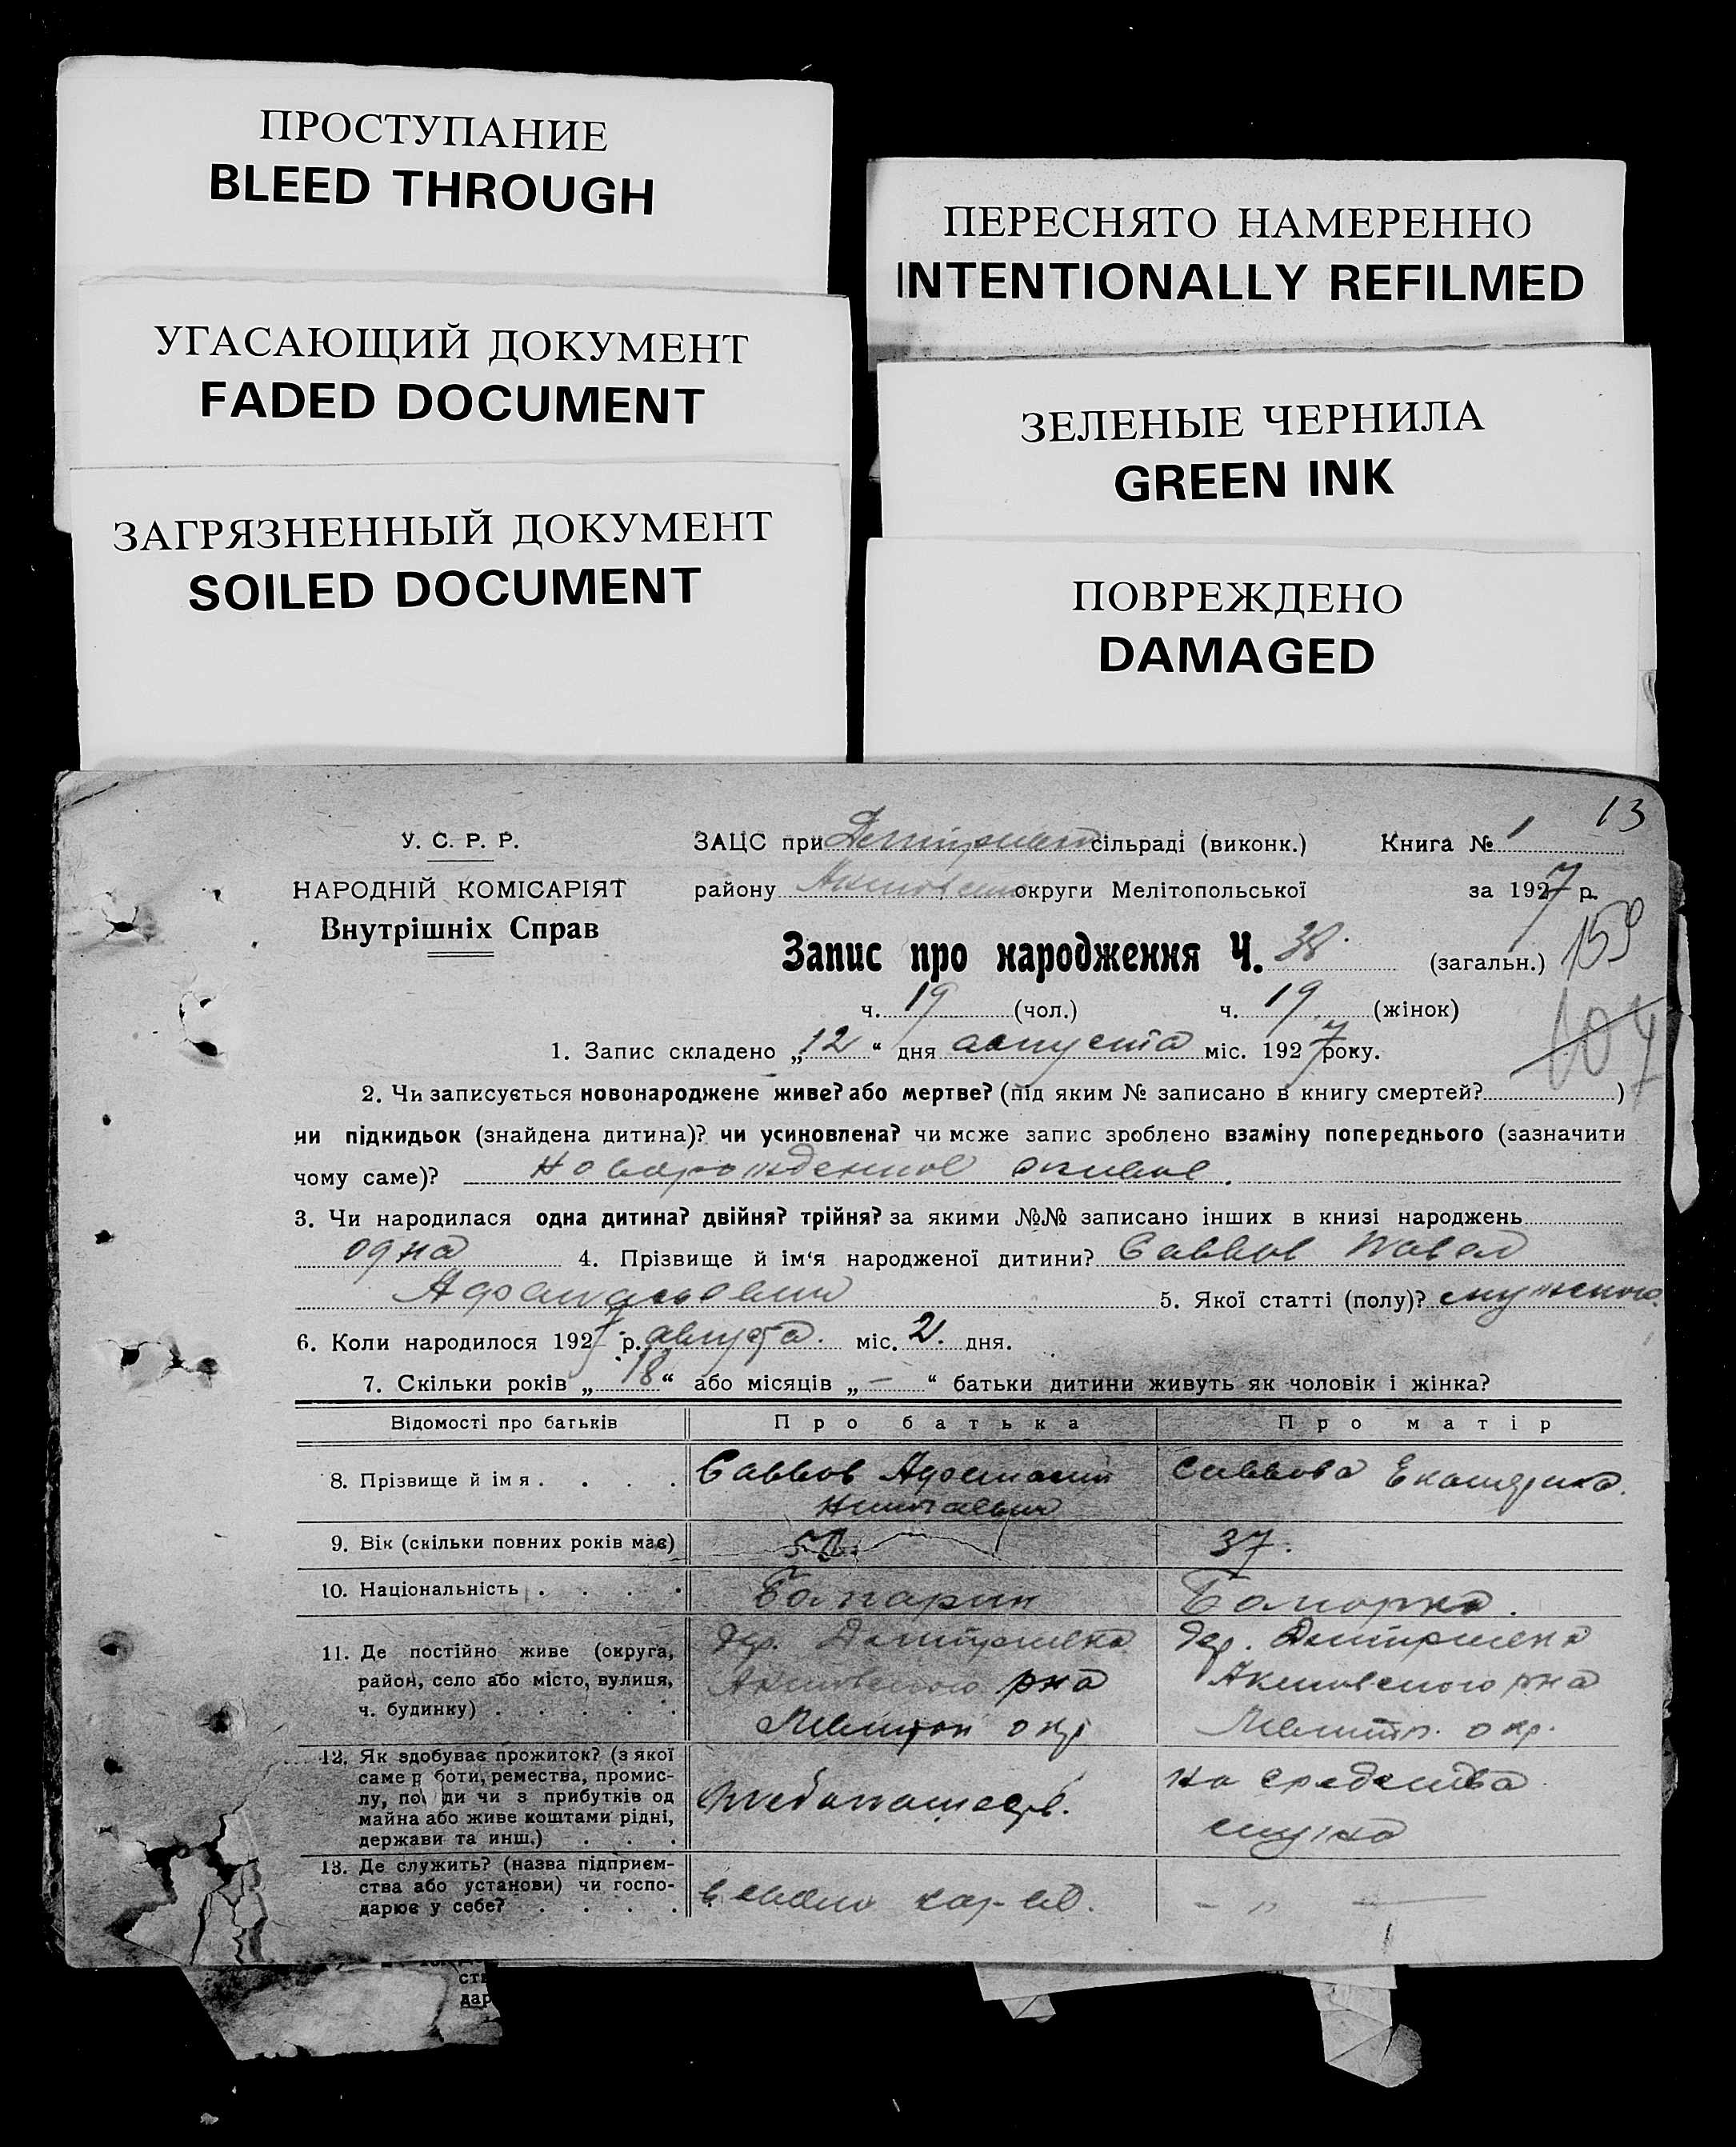 ПРОСТУПАНИЕ
BLEED THROUGH
УГАСАЮЩИЙ ДОКУМЕНТ
FADED DOCUMENT
ЗАГРЯЗНЕННЫЙ ДОКУМЕНТ
SOILED DOCUMENT
ПЕРЕСНЯТО НАМЕРЕННО
INTENTIONALLY REFILMED
ЗЕЛЕНЫЕ ЧЕРНИЛА
GREEN INK
ПОВРЕЖДЕНО
DAMAGED
13
У. С. Р. Р.
НАРОДНІЙ КОМІСАРІЯТ
Внутрішніх Справ
ЗАЦС при сільраді (виконк.) Книга № 1
району округи Мелітопольської за 1927 р.
Запис про народження Ч. 38. (загальн.) 159
ч. 19 (чол.) ч. 19 (жінок)
107
1. Запис складено „12“ дня августа міс. 1927 року.
2. Чи записується новонароджене живе? або мертве? (під яким № записано в книгу смертей? )
чи підкидьок (знайдена дитина)? чи усиновлена? чи може запис зроблено взаміну попереднього (зазначити
чому саме)? новорожденное живое.
3. Чи народилася одна дитина? двійня? трійня? за якими №№ записано інших в книзі народжень
одна 4. Прізвище й ім‘я народженої дитини? Саввов Павел
Афанасьевич 5. Якої статті (полу)? мужского.
6. Коли народилося 1927 р. августа. міс. 2. дня.
7. Скільки років „18“ або місяців „—“ батьки дитини живуть як чоловік і жінка?
Відомості про батьків Про батька Про матір
8. Прізвище й імя . . . . Саввов Афанасий Саввова Екатерина.
9. Вік (скільки повних років має) 37.
10. Національність . . . . Болгарин Болгарка.
11. Де постійно живе (округа,
район, село або місто, вулиця,
ч. будинку) . . . . .
дер. Дмитровка
Акимовского рна
Мелитоп окр
дер. Дмитровка
Акимовского рна
Мелитп. окр.
12. Як здобуває прожиток? (з якої
саме р боти, ремества, промис-
лу, по ди чи з прибутків од
майна або живе коштами рідні,
держави та инш.) . . .
Хлебопашеств.
на средства
мужа
13. Де служить? (назва підприєм-
ства або установи) чи госпо-
дарює у себе? . . . .
в своем хоз-ве.
— „ —
ств
дар